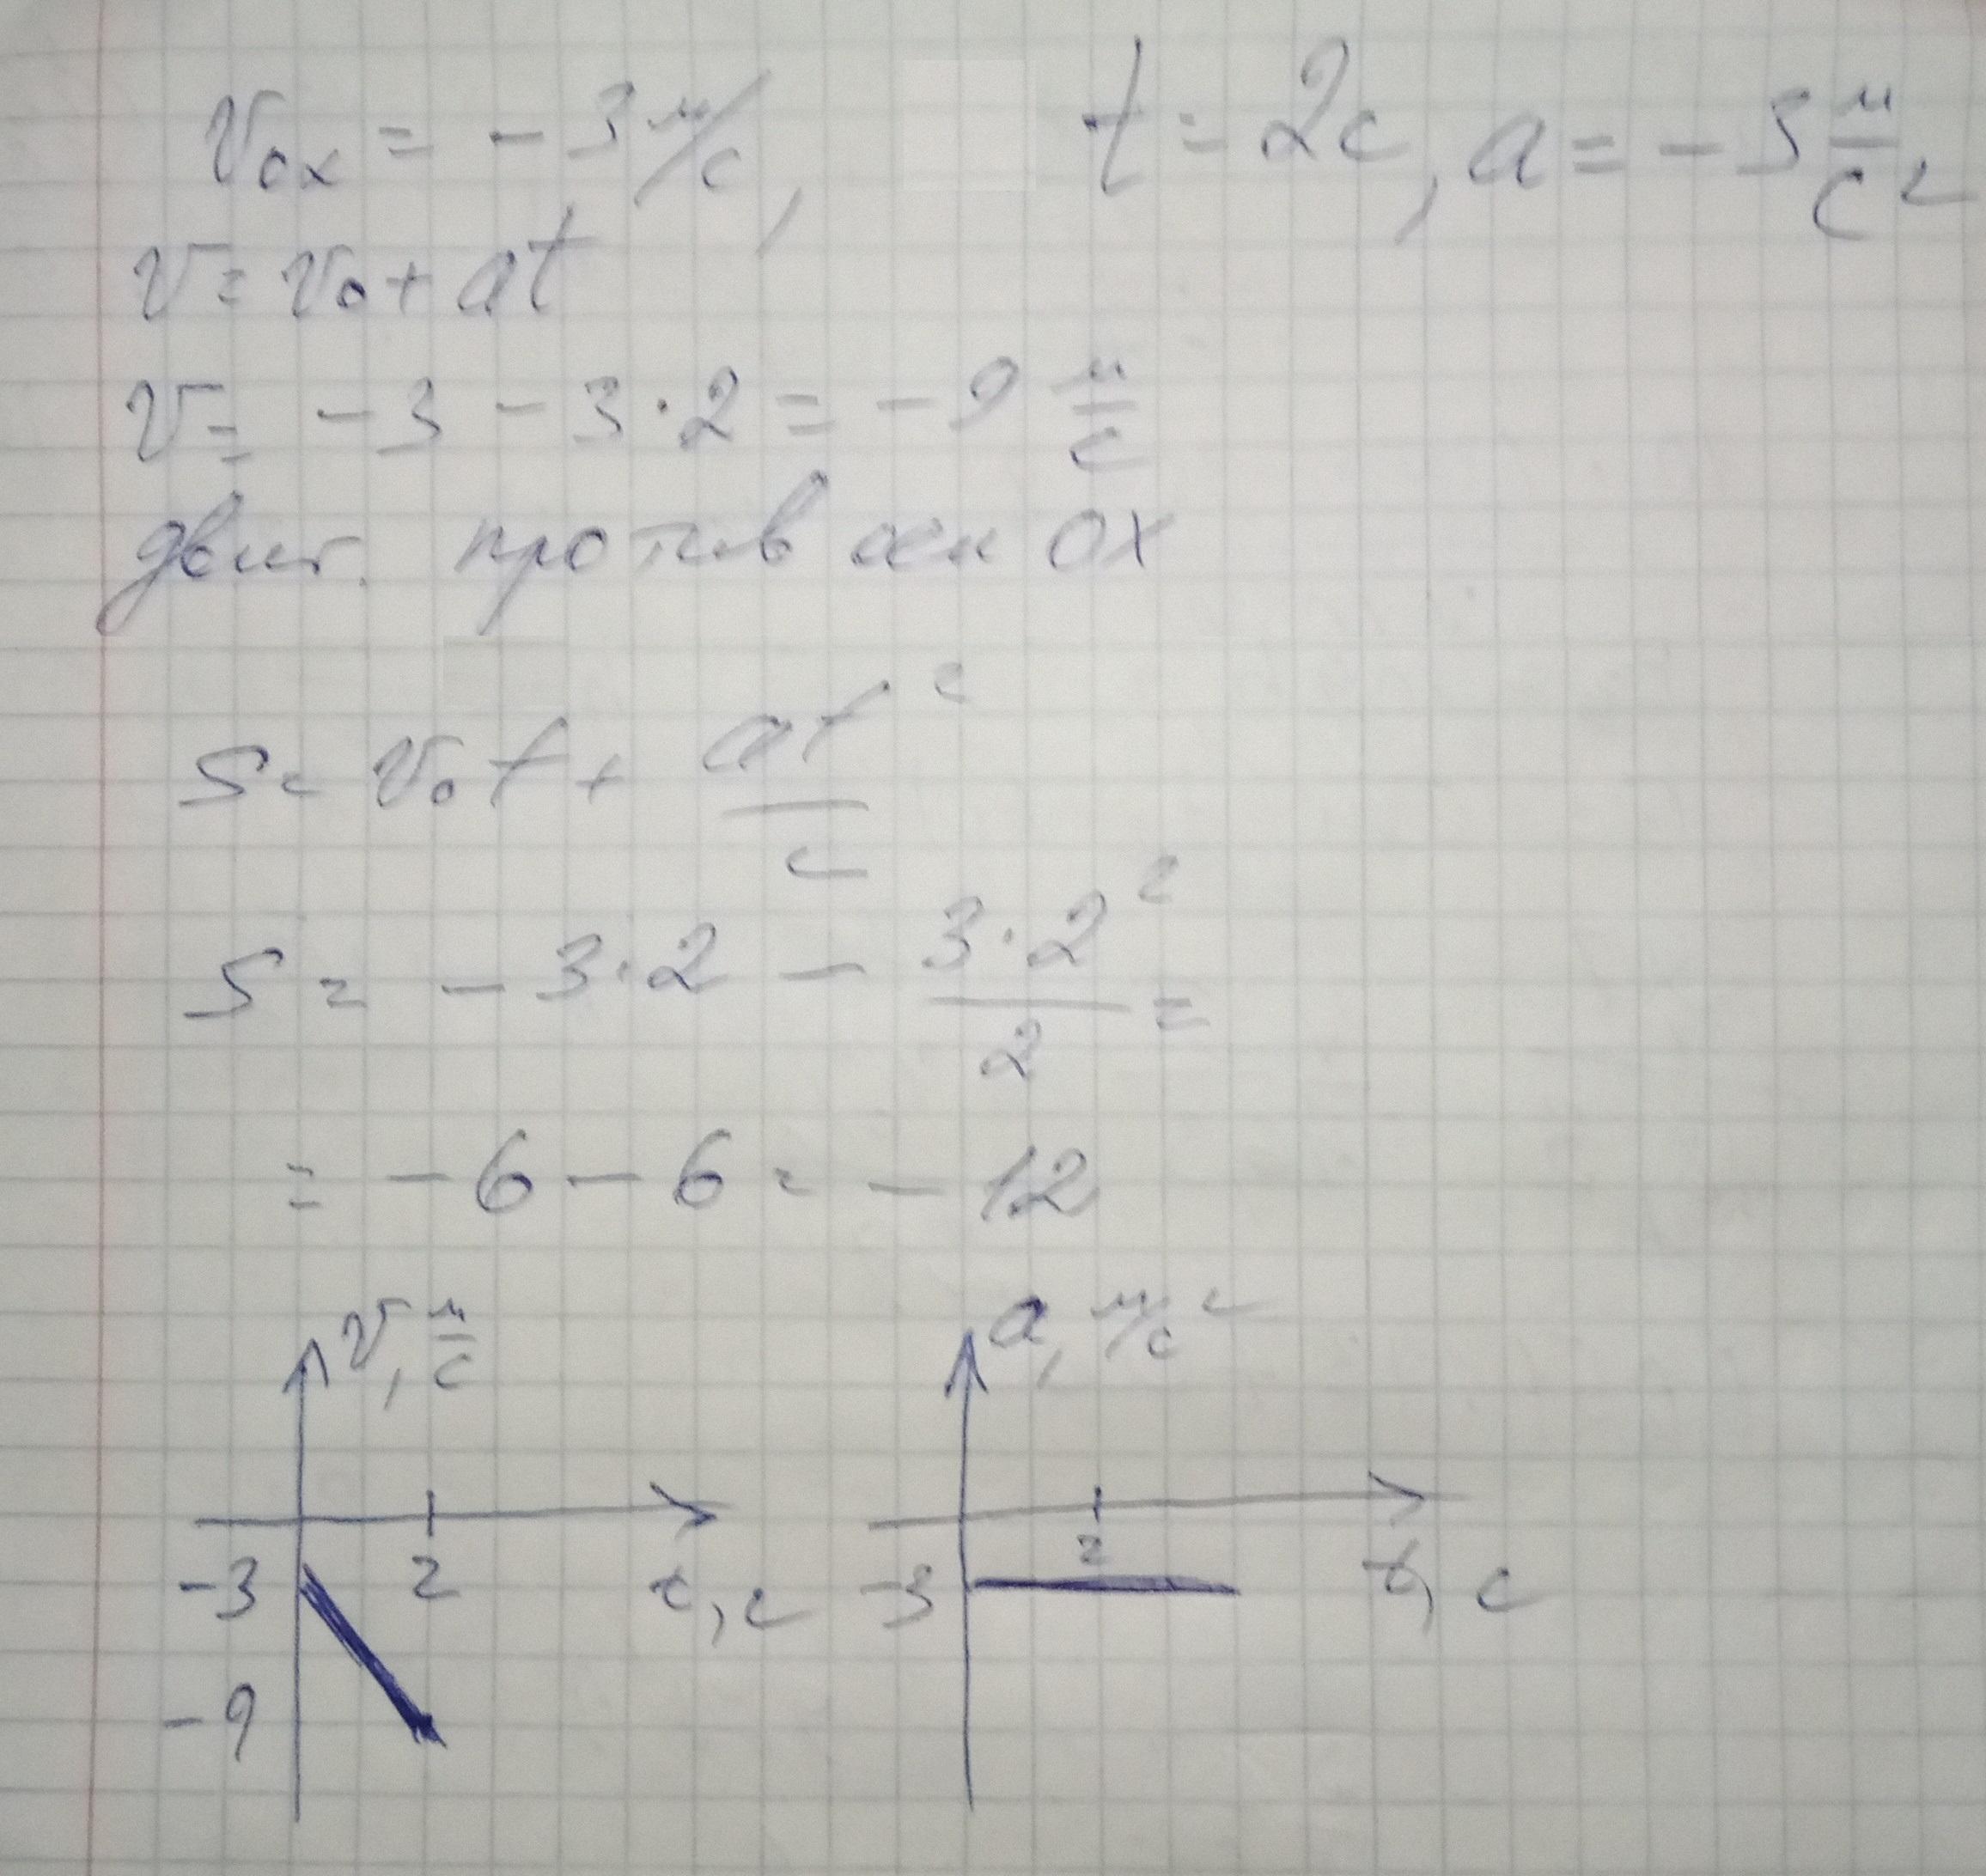 v₀ₓ = - 3 м/с, t = 2с, a = - 3 м/с²
v = v₀ + at
v = - 3 - 3 · 2 = - 9 м/с
двиг. против оси OX
S = v₀t + at²/2
S = - 3 · 2 - 3 · 2²/2 =
= - 6 - 6 = - 12
v, м/с
-3 2 t, с
-9
a, м/с²
2
-3 t, с